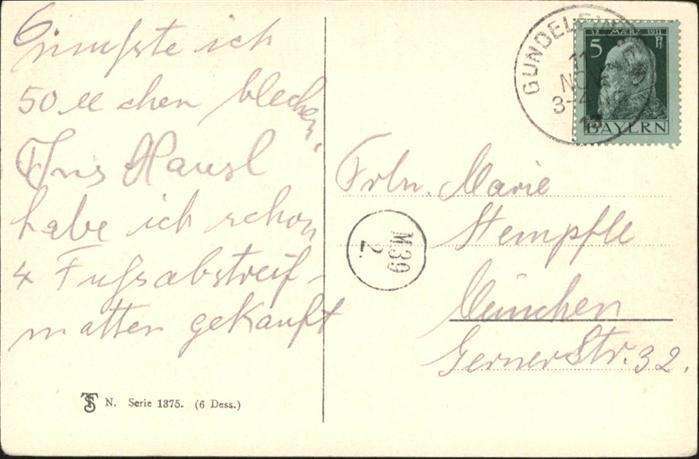 müsste ich
50 M chen blechen.
Ins Hausl
habe ich schon
4 Fussabstreif-
matten gekauft
TS N. Serie 1375. (6 Dess.)
GUNDELF
11
NO
3-4
12 MÄRZ 1911
5 Pf
BAYERN
M39
2.
Frln. Marie
Stempfle
München
Gerner Str. 32.